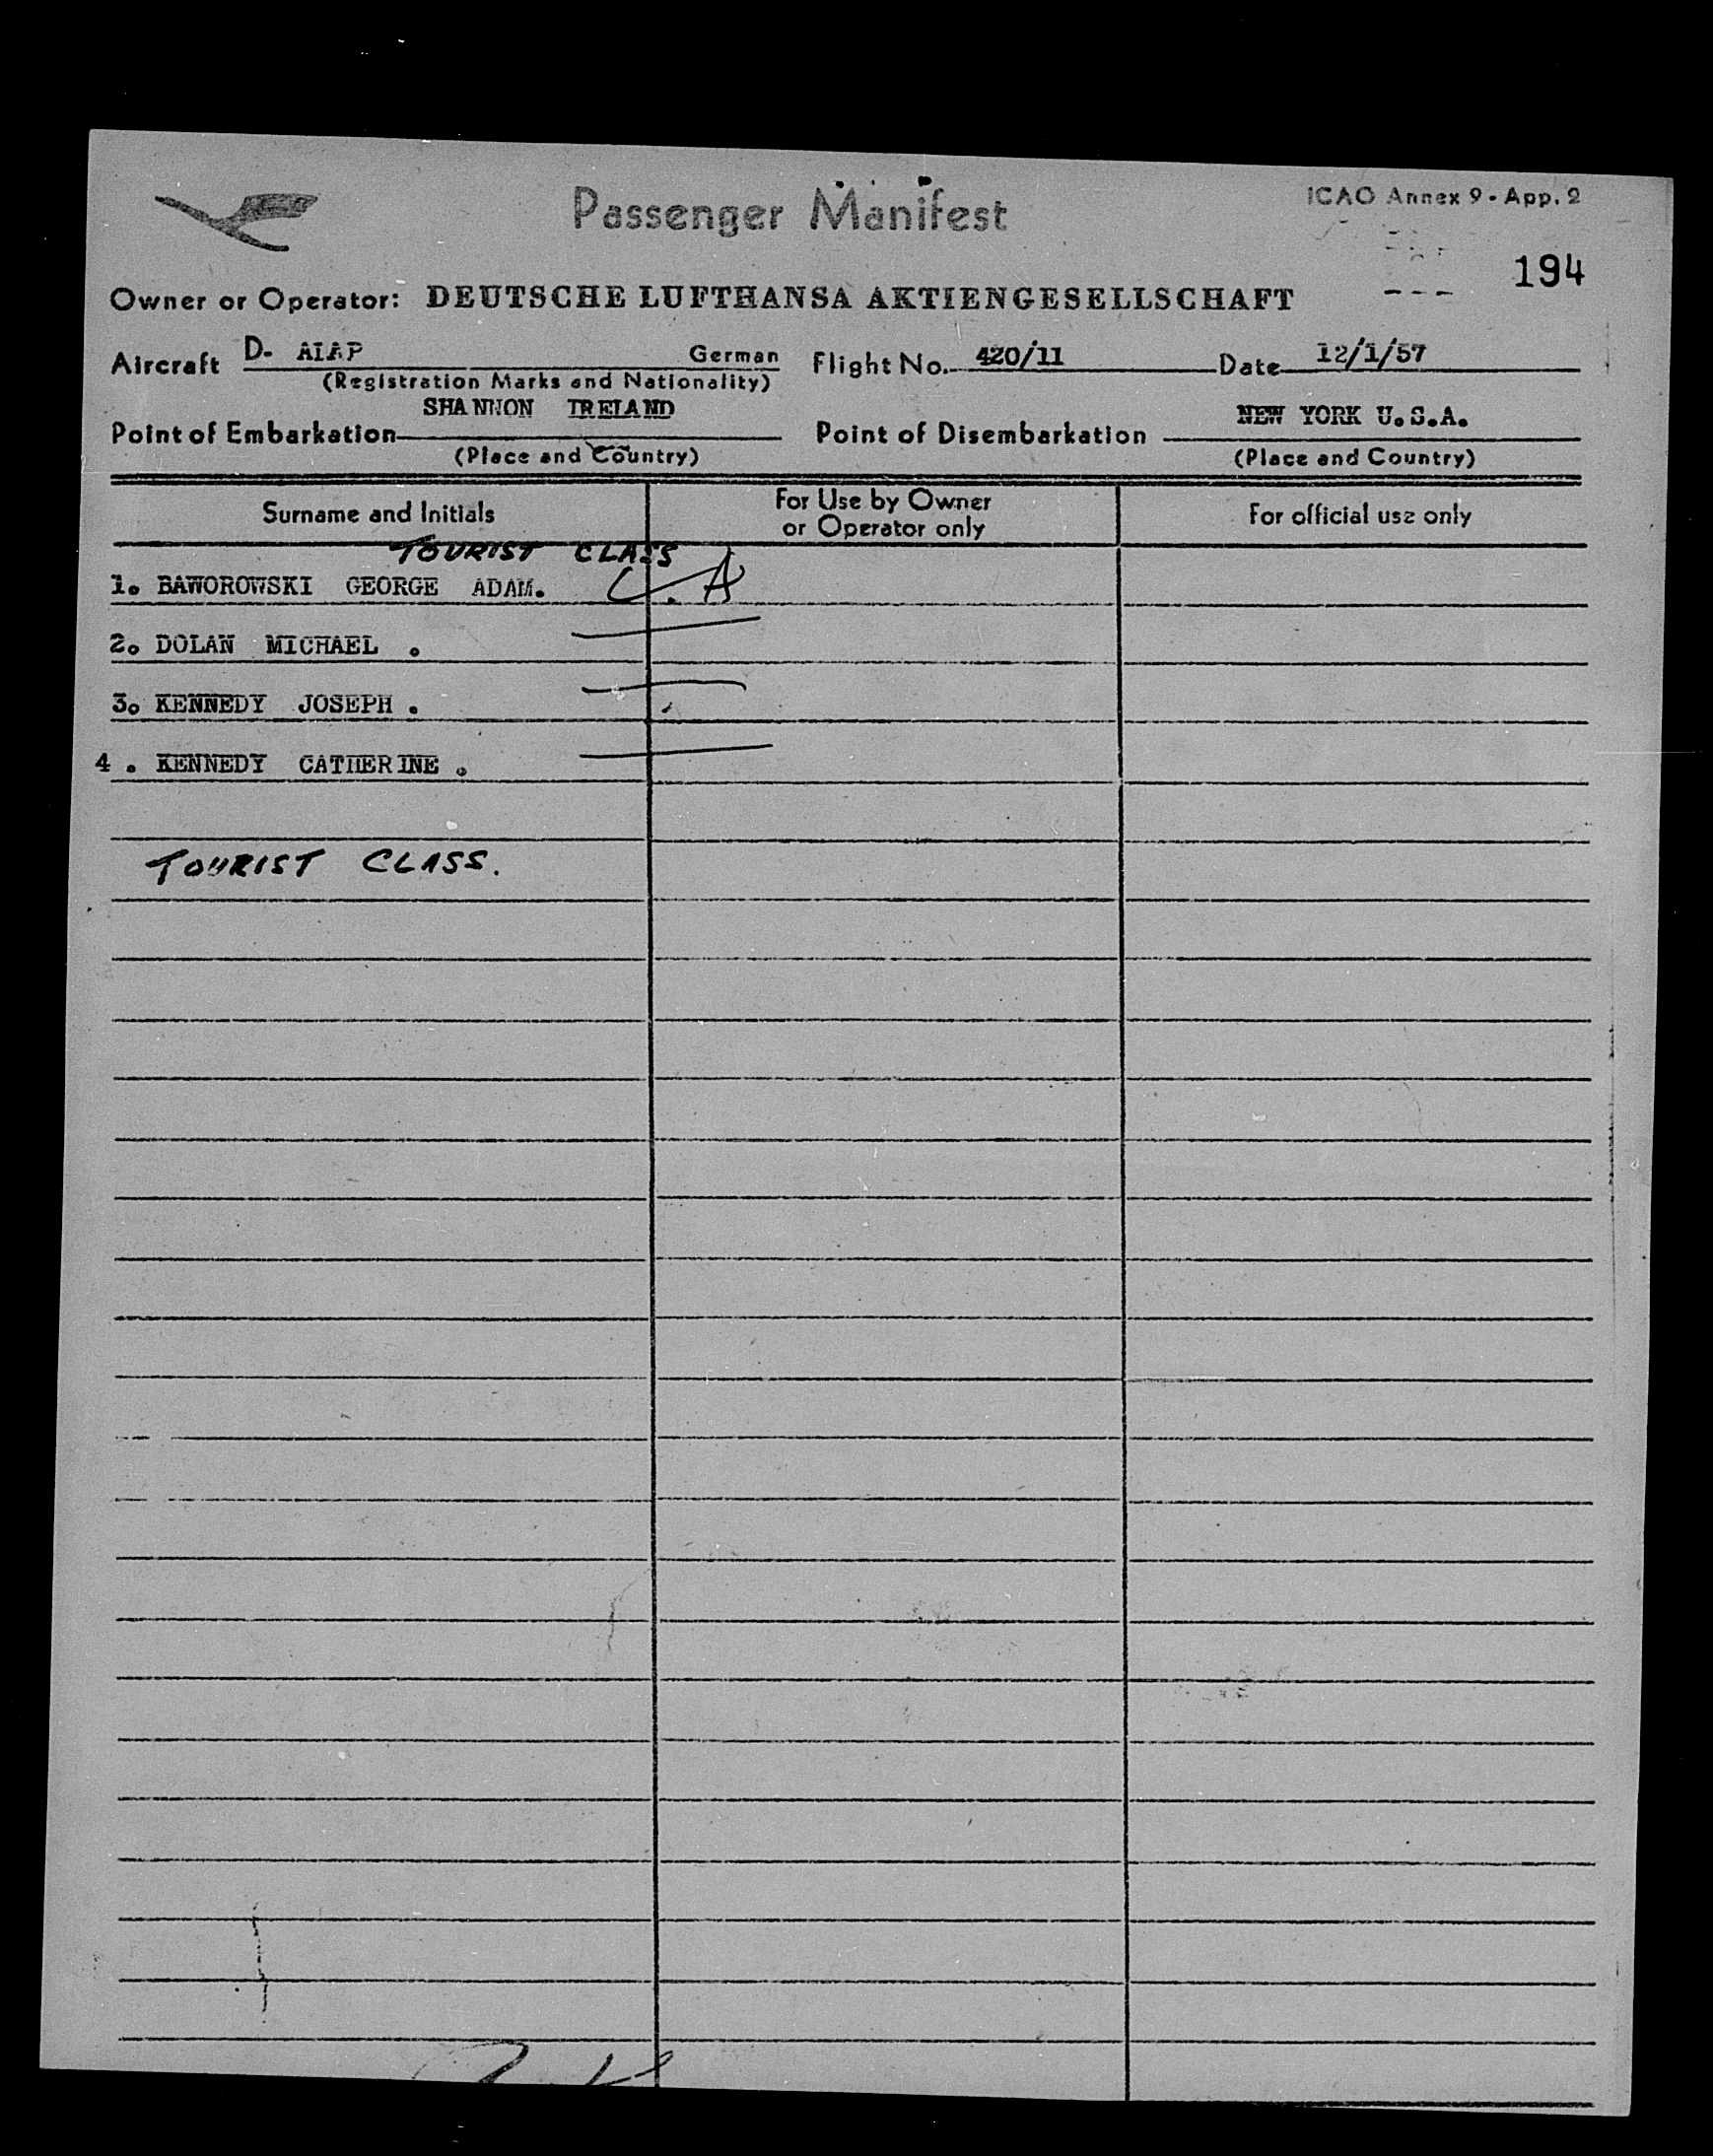 Passenger Manifest
ICAO Annex 9 - App. 2
194
Owner or Operator: DEUTSCHE LUFTHANSA AKTIENGESELLSCHAFT
Aircraft D- AIAP German Flight No. 420/11 Date 12/1/57
(Registration Marks and Nationality)
SHANNON IRELAND NEW YORK U.S.A.
Point of Embarkation Point of Disembarkation
(Place and Country) (Place and Country)
Surname and Initials For Use by Owner or Operator only For official use only
TOURIST CLASS
1. BAWOROWSKI GEORGE ADAM.
2. DOLAN MICHAEL .
3. KENNEDY JOSEPH .
4 . KENNEDY CATHERINE .
TOURIST CLASS.